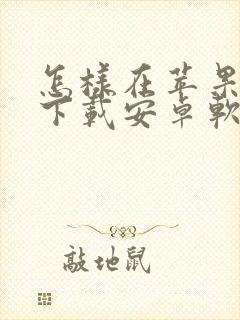 怎樣在苹果
下載安卓軟
敲地鼠